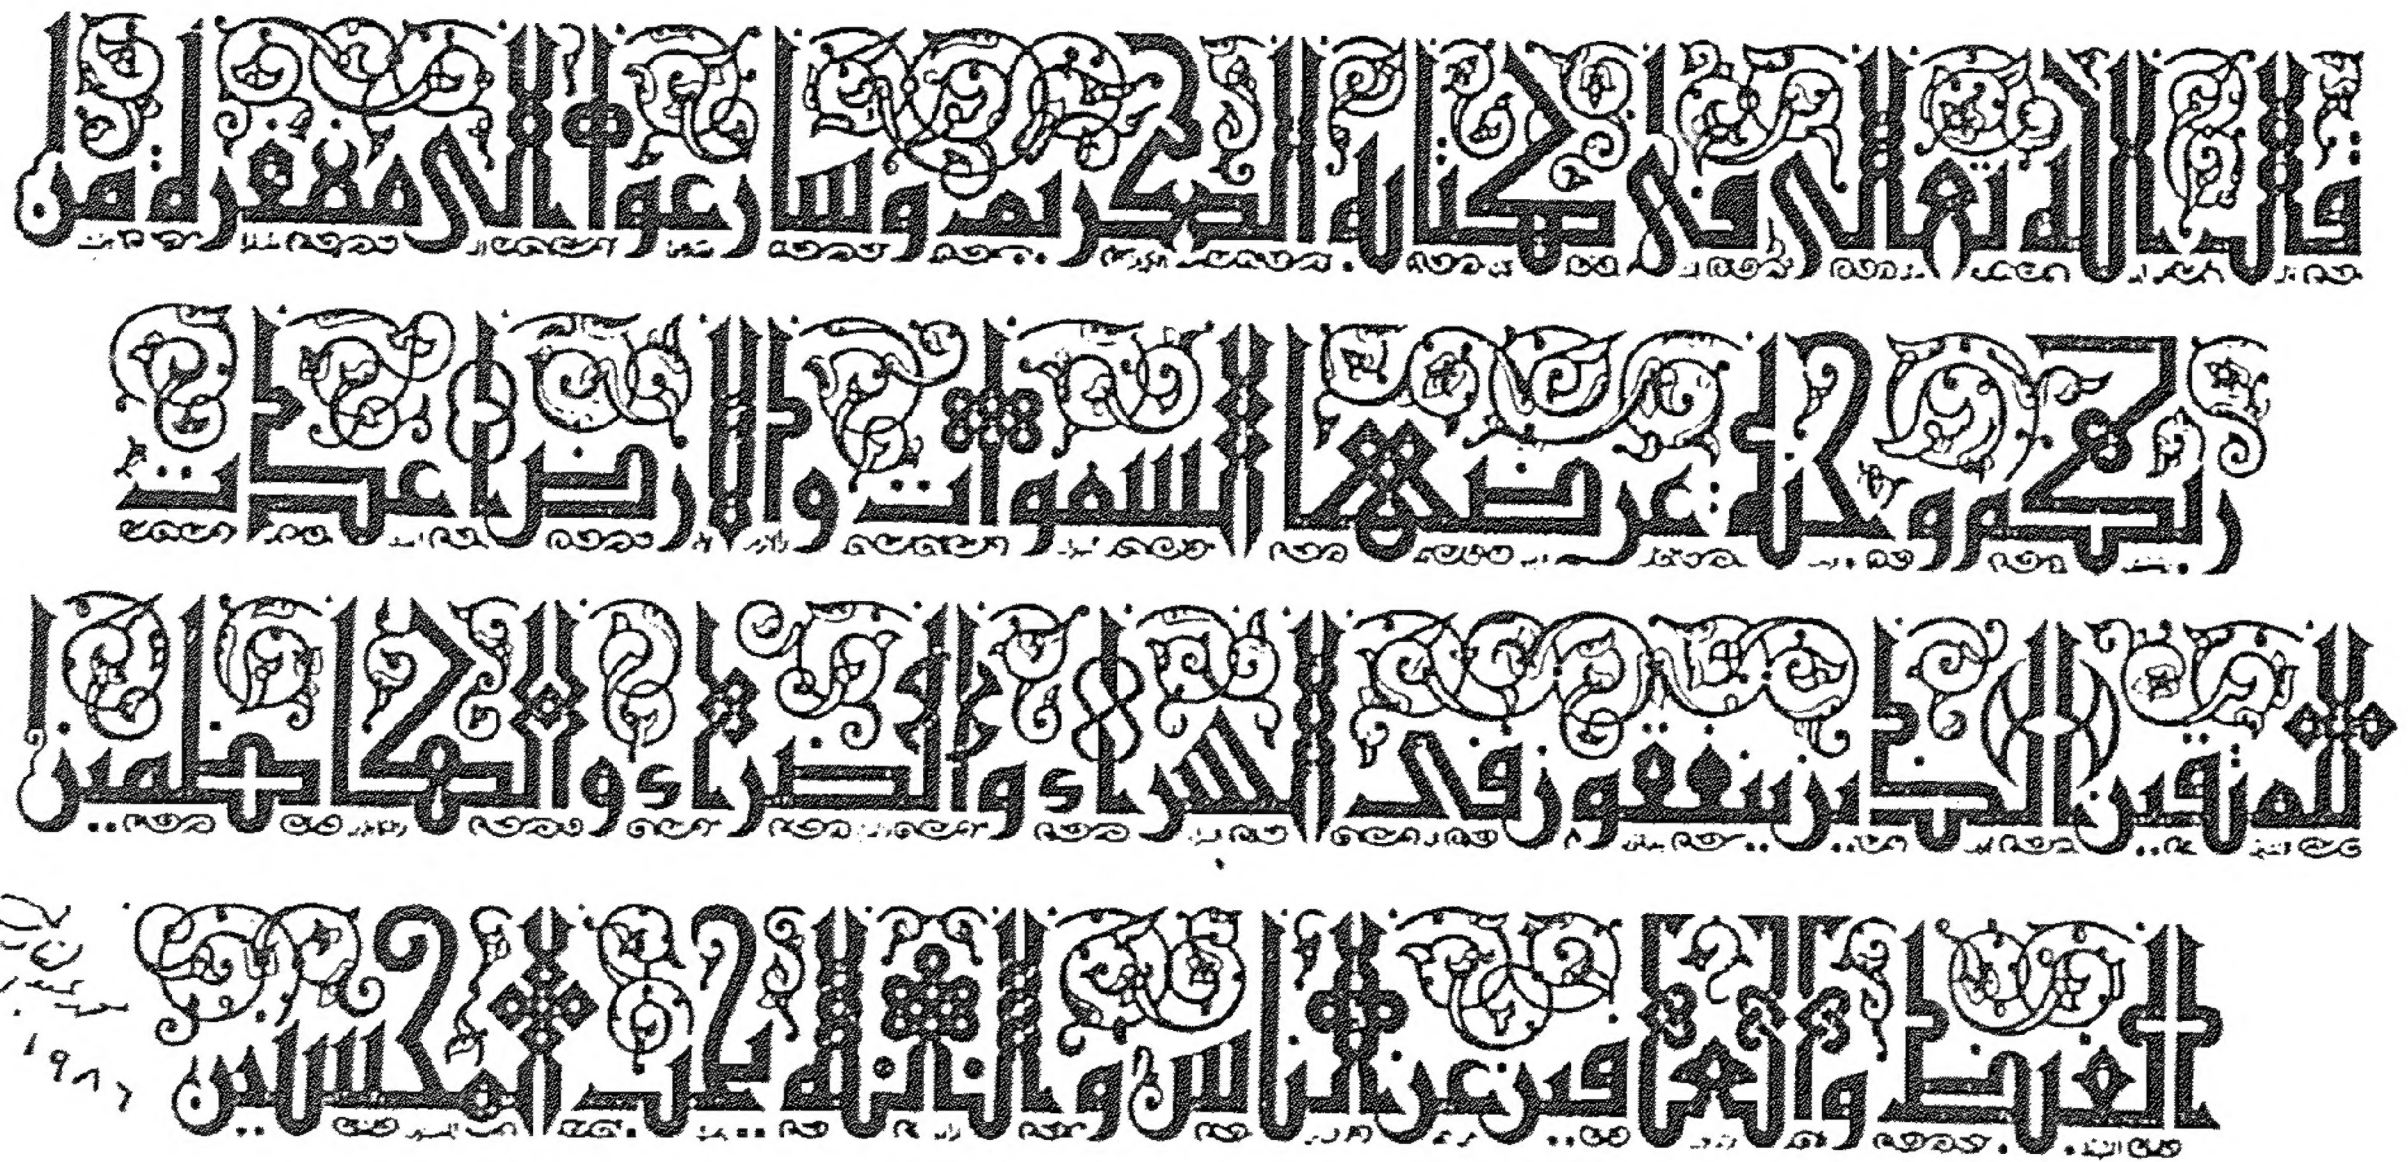 قال الله تعالى في كتابه الكريم وسارعوا إلى مغفرة من
ربكم وجنة عرضها السموات والأرض أعدت
للمتقين الذين ينفقون في السراء والضراء والكاظمين
الغيظ والعافين عن الناس والله يحب المحسنين